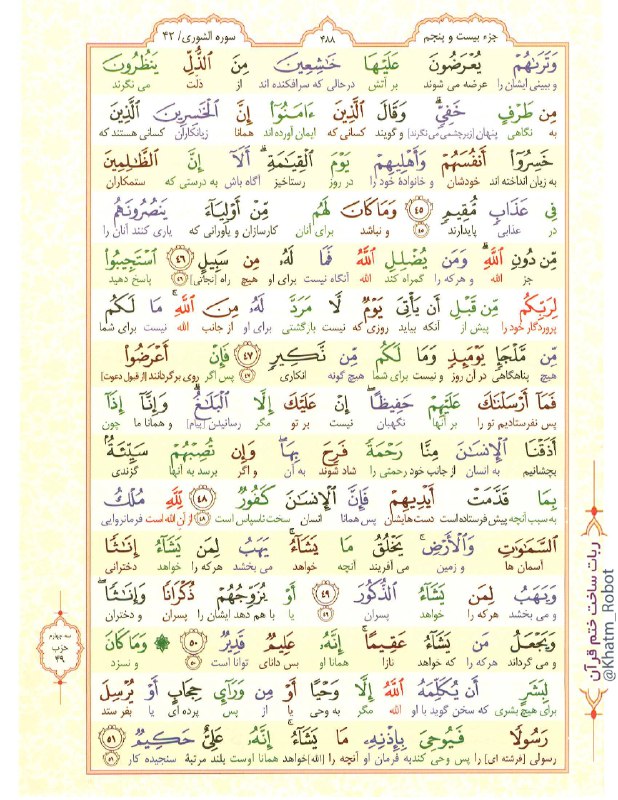 جزء بیست و پنجم
۴۸۸
سوره الشوری/ ۴۲
وَتَرَىٰهُمْ يُعْرَضُونَ عَلَيْهَا خَٰشِعِينَ مِنَ ٱلذُّلِّ يَنظُرُونَ
و ببینی ایشان را عرضه می شوند بر آتش درحالی که سرافکنده اند از ذلت می نگرند
مِن طَرْفٍ خَفِىٍّ ۗ وَقَالَ ٱلَّذِينَ ءَامَنُوٓا۟ إِنَّ ٱلْخَٰسِرِينَ ٱلَّذِينَ
به نگاهی پنهان [زیرچشمی می نگرند] و گویند کسانی که ایمان آورده اند همانا زیانکاران کسانی هستند که
خَسِرُوٓا۟ أَنفُسَهُمْ وَأَهْلِيهِمْ يَوْمَ ٱلْقِيَٰمَةِ ۗ أَلَآ إِنَّ ٱلظَّٰلِمِينَ
به زیان انداخته اند خودشان و خانوادهٔ خود را در روز رستاخیز آگاه باش به درستی که ستمکاران
فِى عَذَابٍ مُّقِيمٍ ۴۵ وَمَا كَانَ لَهُم مِّنْ أَوْلِيَآءَ يَنصُرُونَهُم
در عذابی پایدارند ۴۵ و نباشد برای آنان کارسازان و یاورانی که یاری کنند آنان را
مِّن دُونِ ٱللَّهِ ۗ وَمَن يُضْلِلِ ٱللَّهُ فَمَا لَهُۥ مِن سَبِيلٍ ۴۶ ٱسْتَجِيبُوا۟
جز الله و هرکه را گمراه کند الله آنگاه نیست برای او هیچ راه [نجاتی] ۴۶ پاسخ دهید
لِرَبِّكُم مِّن قَبْلِ أَن يَأْتِىَ يَوْمٌ لَّا مَرَدَّ لَهُۥ مِنَ ٱللَّهِ ۚ مَا لَكُم
پروردگار خود را پیش از آنکه بیاید روزی که نیست بازگشتی برای او از جانب الله نیست برای شما
مِّن مَّلْجَإٍ يَوْمَئِذٍ وَمَا لَكُم مِّن نَّكِيرٍ ۴۷ فَإِنْ أَعْرَضُوا۟
هیچ پناهگاهی در آن روز و نیست برای شما هیچ گونه انکاری ۴۷ پس اگر روی برگردانند [از قبول دعوت]
فَمَآ أَرْسَلْنَٰكَ عَلَيْهِمْ حَفِيظًا ۖ إِنْ عَلَيْكَ إِلَّا ٱلْبَلَٰغُ ۗ وَإِنَّآ إِذَآ
پس نفرستادیم تو را بر آنها نگهبان نیست بر تو مگر رسانیدن [پیام] و همانا ما چون
أَذَقْنَا ٱلْإِنسَٰنَ مِنَّا رَحْمَةً فَرِحَ بِهَا ۖ وَإِن تُصِبْهُمْ سَيِّئَةٌۢ
بچشانیم به انسان از جانب خود رحمتی را شاد شوند به آن و اگر برسد به آنها گزندی
بِمَا قَدَّمَتْ أَيْدِيهِمْ فَإِنَّ ٱلْإِنسَٰنَ كَفُورٌ ۴۸ لِّلَّهِ مُلْكُ
به سبب آنچه پیش فرستاده است دست هایشان پس همانا انسان سخت ناسپاس است ۴۸ از آن الله است فرمانروایی
ٱلسَّمَٰوَٰتِ وَٱلْأَرْضِ ۚ يَخْلُقُ مَا يَشَآءُ ۚ يَهَبُ لِمَن يَشَآءُ إِنَٰثًا
آسمان ها و زمین می آفریند آنچه خواهد می بخشد هرکه را خواهد دخترانی
وَيَهَبُ لِمَن يَشَآءُ ٱلذُّكُورَ ۴۹ أَوْ يُزَوِّجُهُمْ ذُكْرَانًا وَإِنَٰثًا ۖ
و می بخشد هرکه را خواهد پسران ۴۹ یا با هم دهد ایشان را پسران و دختران
وَيَجْعَلُ مَن يَشَآءُ عَقِيمًا ۚ إِنَّهُۥ عَلِيمٌ قَدِيرٌ ۵۰ وَمَا كَانَ
و می گرداند هرکه را که خواهد نازا همانا او بس دانای توانا است ۵۰ و نسزد
لِبَشَرٍ أَن يُكَلِّمَهُ ٱللَّهُ إِلَّا وَحْيًا أَوْ مِن وَرَآئِ حِجَابٍ أَوْ يُرْسِلَ
برای هیچ بشری که سخن گوید با او الله مگر به وحی یا از پس پرده ای یا بفرستد
رَسُولًا فَيُوحِىَ بِإِذْنِهِۦ مَا يَشَآءُ ۚ إِنَّهُۥ عَلِىٌّ حَكِيمٌ ۵۱
رسولی [فرشته ای] را پس وحی کند به فرمان او آنچه را [الله] خواهد همانا اوست بلند مرتبهٔ سنجیده کار ۵۱
سه چهارم
حزب
۴۹
ربات ساخت ختم قرآن
@Khatm_Robot